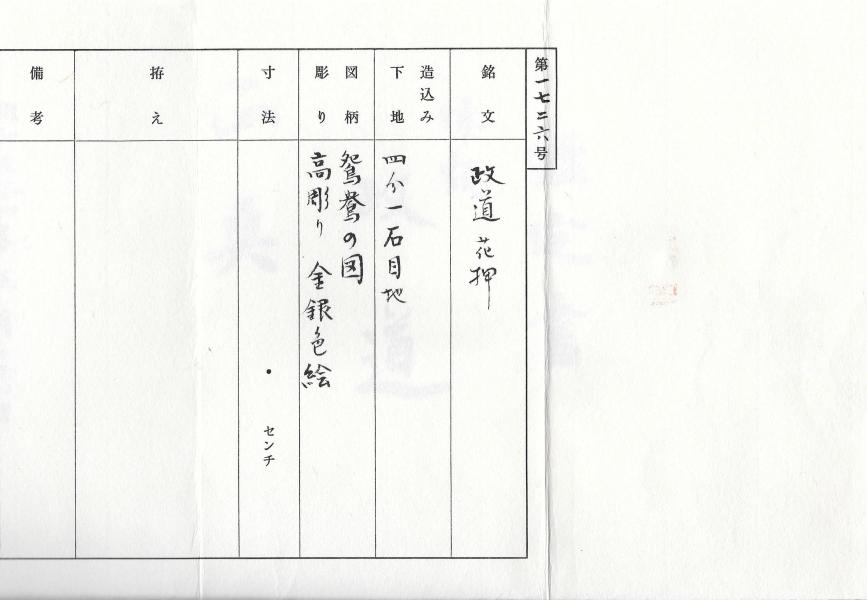 第一七二六号
銘文
政道 花押
造込み
下地
四分一石目地
図柄
彫り
鴛鴦の図
高彫り 金銀色絵
寸法
・ センチ
拵え
備考